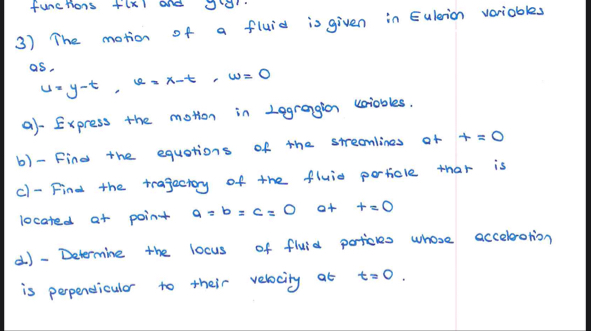 functions f(x) and g(y).
3) The motion of a fluid is given in Eulerian variables
as,
u = y-t , v = x-t , w = 0
a)- Express the motion in Lagrangian variables.
b)- Find the equations of the streamlines at t = 0
c)- Find the trajectory of the fluid particle that is
located at point a = b = c = 0 at t = 0
d)- Determine the locus of fluid particles whose acceleration
is perpendicular to their velocity at t = 0.